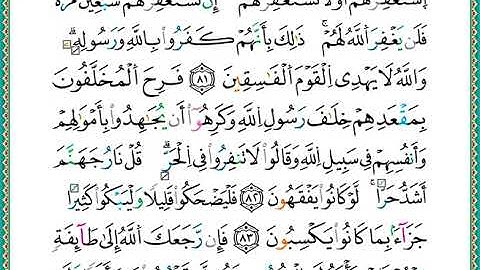 اِسْتَغْفِرْ لَهُمْ أَوْ لَا تَسْتَغْفِرْ لَهُمْ إِن تَسْتَغْفِرْ لَهُمْ سَبْعِينَ مَرَّةً
فَلَن يَغْفِرَ اَللَّهُ لَهُمْ ذَٰلِكَ بِأَنَّهُمْ كَفَرُواْ بِاللَّهِ وَرَسُولِهِ
وَاللَّهُ لَا يَهْدِي اِلْقَوْمَ اَلْفَاسِقِينَ ٨١ فَرِحَ اَلْمُخَلَّفُونَ
بِمَقْعَدِهِمْ خِلَافَ رَسُولِ اِللَّهِ وَكَرِهُواْ أَن يُجَاهِدُواْ بِأَمْوَالِهِمْ
وَأَنفُسِهِمْ فِي سَبِيلِ اِللَّهِ وَقَالُواْ لَا تَنفِرُواْ فِي اِلْحَرِّ قُلْ نَارُ جَهَنَّمَ
أَشَدُّ حَرًّا لَوْ كَانُواْ يَفْقَهُونَ ٨٢ فَلْيَضْحَكُواْ قَلِيلًا وَلْيَبْكُواْ كَثِيرًا
جَزَآءً بِمَا كَانُواْ يَكْسِبُونَ ٨٣ فَإِن رَّجَعَكَ اَللَّهُ إِلَىٰ طَآئِفَةٍ